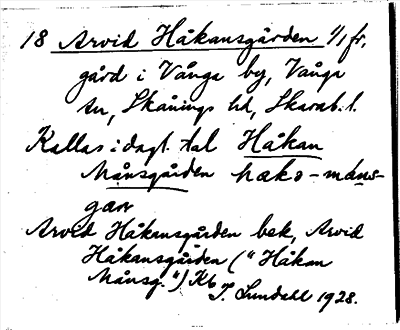 18 Arvid Håkansgården 1/1 fr.
gård i Vånga by, Vånga
sn, Skånings hd, Skarab. l.
Kallas i dagl. tal Håkan
Månsgården hakå-måns-
gæɹ
Arvid Håkansgården bek, Arvid
Håkansgården ("Håkan
Månsg.") Kb
T. Lundahl 1928.